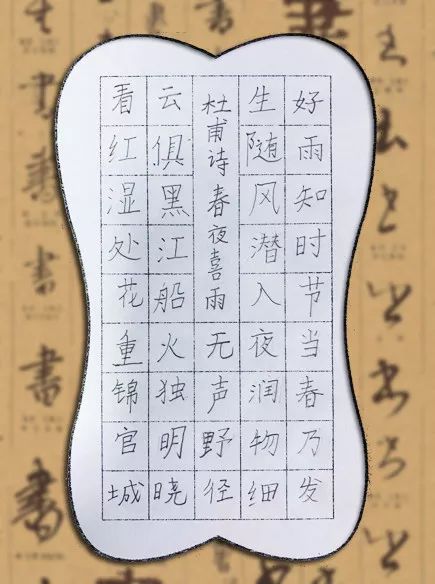 好雨知时节当春乃发
生随风潜入夜润物细
杜甫诗春夜喜雨
无声野径
云俱黑江船火独明晓
看红湿处花重锦官城